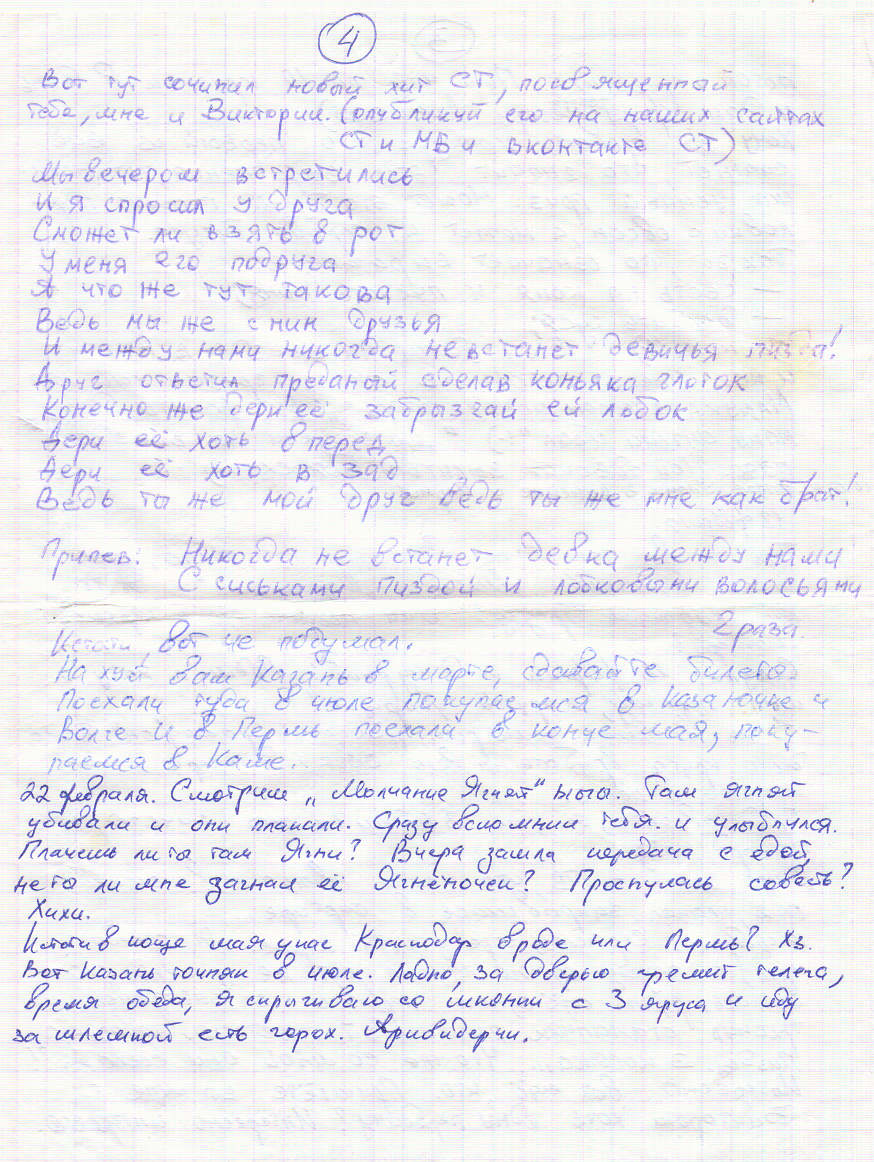 4
Вот тут сочинил новый хит СТ, посвященный
тебе, мне и Виктории. (опубликуй его на наших сайтах
СТ и МБ и вконтакте СТ)
Мы вечером встретились
И я спросил у друга
Сможет ли взять в рот
У меня его подруга
А что же тут такова
Ведь мы же с ним друзья
И между нами никогда не встанет девичья пизда!
Друг ответил преданый сделав коньяка глоток
Конечно же дери её забрызгай ей лобок
Дери её хоть в перед
Дери её хоть в зад
Ведь ты же мой друг Ведь ты же мне как брат!
Припев: Никогда не встанет девка между нами
С сиськами пиздой и лобковыми волосьями
2 раза.
Кстати, вот че подумал.
На хуй вам Казань в марте, сдавайте билеты.
Поехали туда в июле покупаемся в Казаночке и
Волге И в Пермь поехали в конце мая, поку-
паемся в Каме.
22 февраля. Смотрим „Молчание Ягнят" ыгы. Там ягнят
убивали и они плакали. Сразу вспомнил тебя. и улыбнулся.
Плачешь ли ты там Ягни? Вчера зашла передача с едой,
не ты ли мне загнал её Ягнёночек? Проснулась совесть?
Хихи.
Кстати в конце мая у нас Краснодар вроде или Пермь? Хз.
Вот Казань точняк в июле. Ладно, за дверью гремит телега,
время обеда, я спрыгиваю со шконки с 3 яруса и иду
за шлемкой есть горох. Аривидерчи.